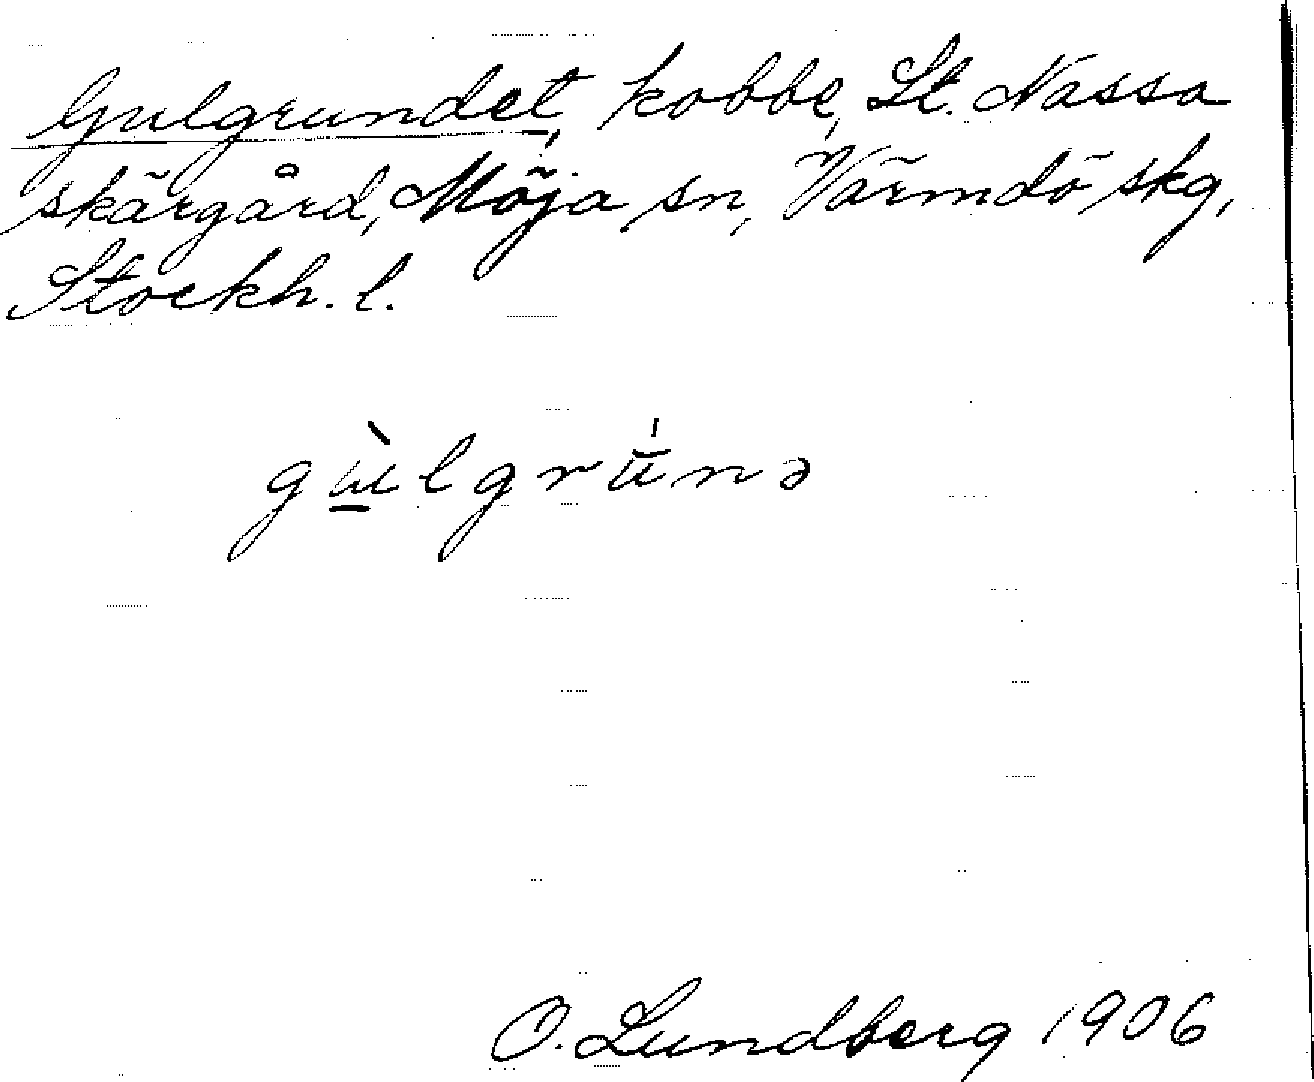 Gulgrundet, kobbe, St. Nassa
skärgård, Möja sn, Värmdö skg,
Stockh. l.
gù̲lgrŭ́nə
O. Lundberg 1906